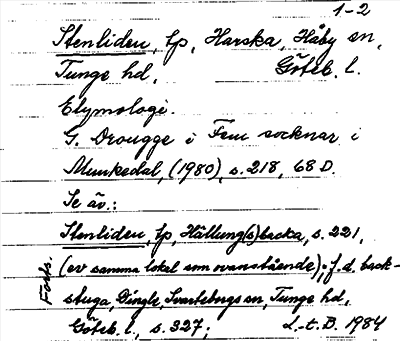 1-2
Stenliden, lp, Harska, Håby sn,
Tunge hd, Göteb. l.
Etymologi.
G. Drougge i Fem socknar i
Munkedal, (1980), s. 218, 68 D.
Se äv.:
Stenliden, lp, Hällung(s)backa, s. 221,
(ev samma lokal som ovanstående); f.d. back-
stuga, Dingle, Svarteborgs sn, Tunge hd,
Göteb. l., s. 327; L.-t. B. 1984
Forts.